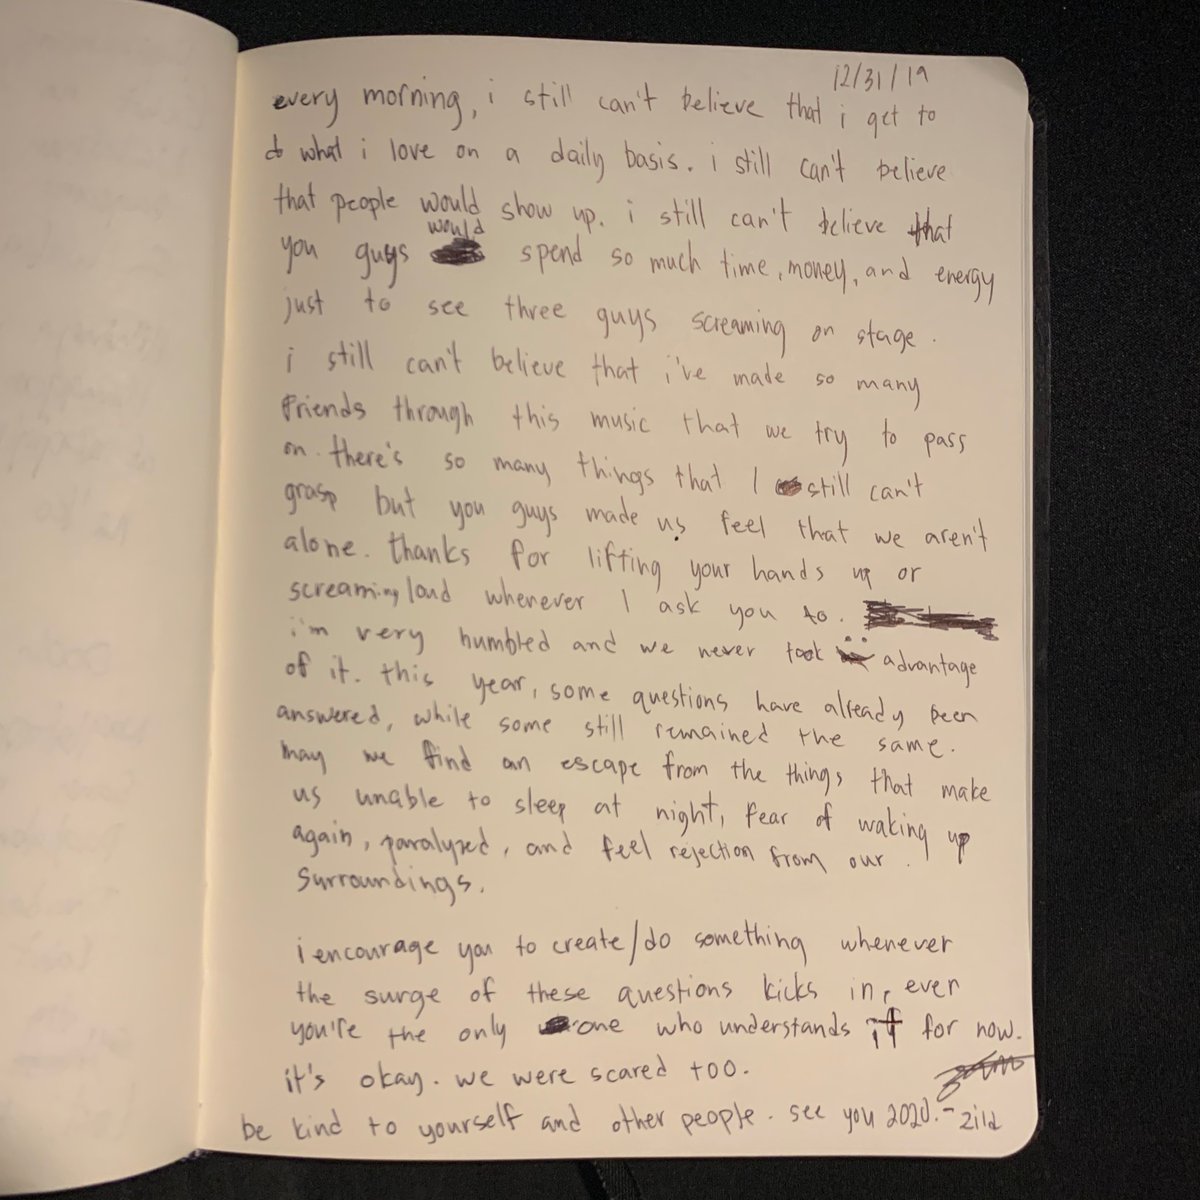 12/31/19
every morning, i still can't believe that i get to
do what i love on a daily basis. i still can't believe
that people would show up. i still can't believe that
you guys would spend so much time, money, and energy
just to see three guys screaming on stage.
i still can't believe that i've made so many
friends through this music that we try to pass
on. there's so many things that I still can't
grasp but you guys made us feel that we aren't
alone. thanks for lifting your hands up or
screaming loud whenever I ask you to.
i'm very humbled and we never took advantage
of it. this year, some questions have already been
answered, while some still remained the same.
may we find an escape from the things that make
us unable to sleep at night, fear of waking up
again, paralyzed, and feel rejection from our
surroundings.
i encourage you to create/do something whenever
the surge of these questions kicks in, ever
you're the only one who understands it for now.
it's okay. we were scared too.
be kind to yourself and other people. see you 2020. - zild